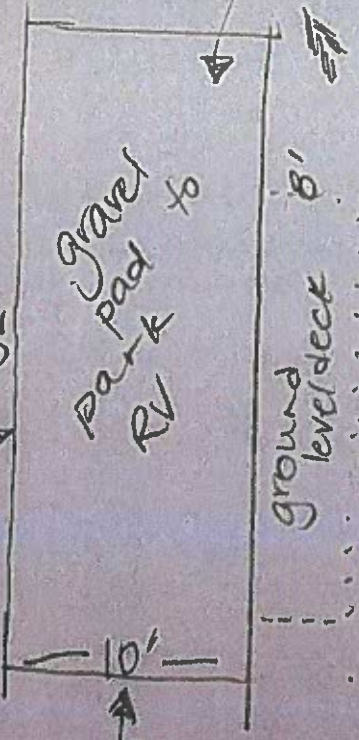 gravel
pad to
park
RV
10'
ground
level deck 8'